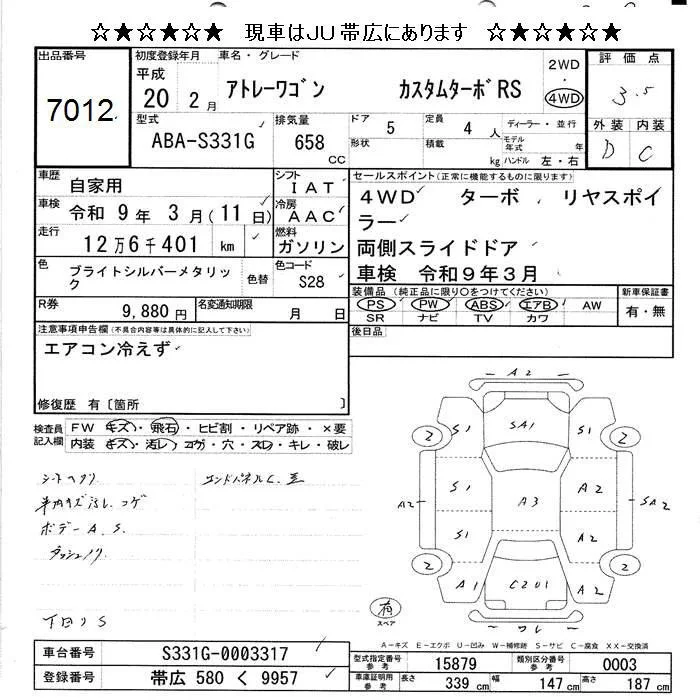 ☆★☆★☆★ 現車はJU帯広にあります ☆★☆★☆★
出品番号
7012
初度登録年月
平成
20 2 月
車名・グレード
アトレーワゴン カスタムターボRS
2WD
・
4WD
評価点
3.5
外装 内装
D C
型式
ABA-S331G
排気量
658
CC
ドア
5
定員
4 人
ディーラー・並行
形状
積載
kg
モデル年式
年
ハンドル 左・右
車歴
自家用
シフト
IAT
車検
令和 9年 3月(11日)
冷房
AAC
走行
12万6千401 km
燃料
ガソリン
色
ブライトシルバーメタリック
色替
色コード
S28
R券
9,880 円
名変通知期限
月 日
セールスポイント(正常に機能するものに限ります)
4WD ターボ リヤスポイ
ラー
両側スライドドア
車検 令和9年3月
装備品 (純正品に限り○をつけてください)
PS PW ABS エアB AW
SR ナビ TV カワ
新車保証書
有・無
後日品
注意事項申告欄(不具合内容等は具体的に記入して下さい)
エアコン冷えず
修復歴 有〔箇所 〕
検査員
記入欄
FW キズ・飛石・ヒビ割・リペア跡・×要
内装 キズ・汚レ・コゲ・穴・スレ・キレ・破レ
ボデー A. S.
下回り S
A2
S1 SA1 S1
2 2
S1 A3 A2
A2 SA2
S1 A2
2 2
A1 C201 A2
有
スペア
A-キズ E-エクボ U-凹み W-補修跡 S-サビ C-腐食 XX-交換済
車台番号
S331G-0003317
登録番号
帯広 580 く 9957
型式指定番号
参考
15879
類別区分番号
参考
0003
車庫証明用
参考
長さ
339 cm
幅
147 cm
高さ
187 cm